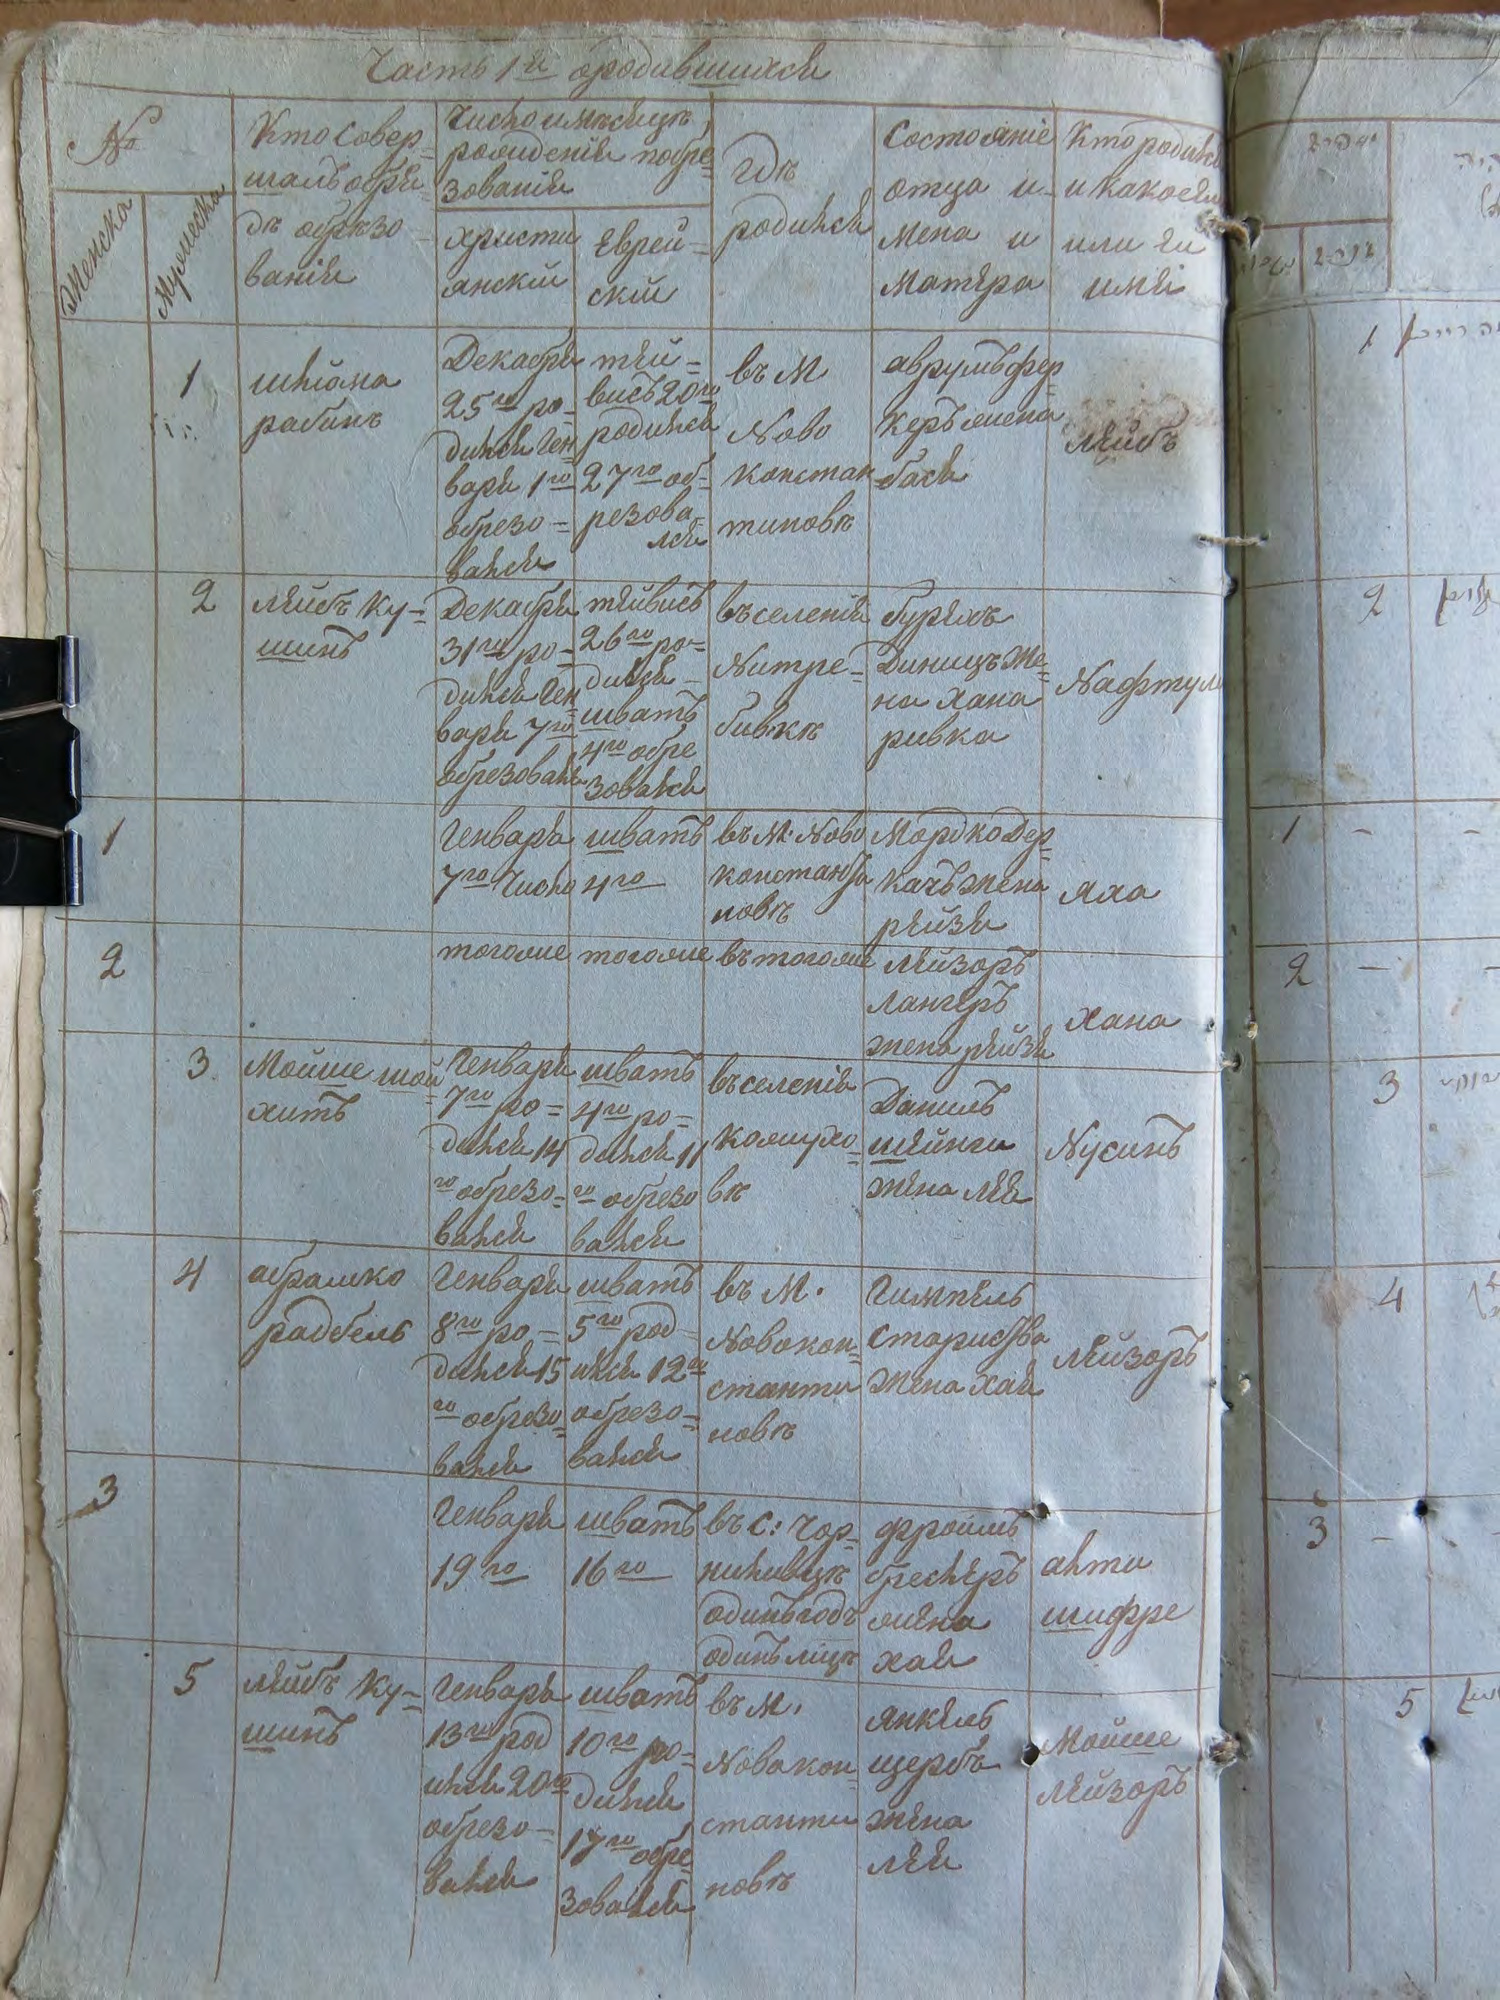 Часть 1й ородившихся
№
Женска
Мужеска
Кто Совер-
шалъ обря-
дъ обрѣзо-
ванія
Число и мѣсяцъ
рождѣнія и обре-
зованія
христи
анскій
Еврей-
скій
гдѣ
родился
Состояніе
отца и
мена и
Матѣра
Кто родился
и какое
или ея
имя
1
шлйома
рабинъ
Декабря
25го ро-
дился Ген
варя 1го
обрезо-
вался
тей-
висъ 20го
родился
27го об-
резова-
лся
въ М
Ново
констан
тиновѣ
аврумъ фер-
керъ жена
бася
лейбъ
2
лейбъ Ку-
шинъ
Декабря
31го ро-
дился Ген
варя 7го
обрезовалс
тейвисъ
26го ро-
дился
шватъ
4го обре
зовался
въ селеніи
Митре-
бивкѣ
бурехъ
Диницъ Же-
на хана
ривка
Нафтул
1
Генваря
7го Число
шватъ
4го
въ М. Ново
константи
новѣ
Мордко Дер-
качъ жена
рейзя
яха
2
тогоже
тогоже
въ тогоже
лейзоръ
лангеръ
жена рейзя
хана
3
Мойше шой-
хитъ
Генваря
7го ро-
дился 14
го обрезо-
вался
шватъ
4го ро-
дился 11
го обрезо
вался
въ селеніи
Кожухо-
вѣ
Данилъ
шейнги
жена лея
Нусинъ
4
абрамко
радбель
Генваря
8го ро-
дился 15
го обрезо-
вался
шватъ
5го род-
ился 12го
обрезо-
вался
въ М.
Новокон-
станти
новѣ
Гимпель
старисъва
жена хая
лейзоръ
3
Генваря
19го
шватъ
16го
въ с: Чор-
одинъ годъ
одинъ
фроимъ
бреслеръ
жена
хая
шифре
5
лейбъ Ку-
шинъ
Генваря
13го род
ился 20го
обрезо-
вался
шватъ
10го ро-
дился
17го обре-
зовался
въ М.
Новокон-
станти
новѣ
янкель
щербъ
жена
лея
Мойше
лейзоръ
1
2
1
2
3
4
3
5